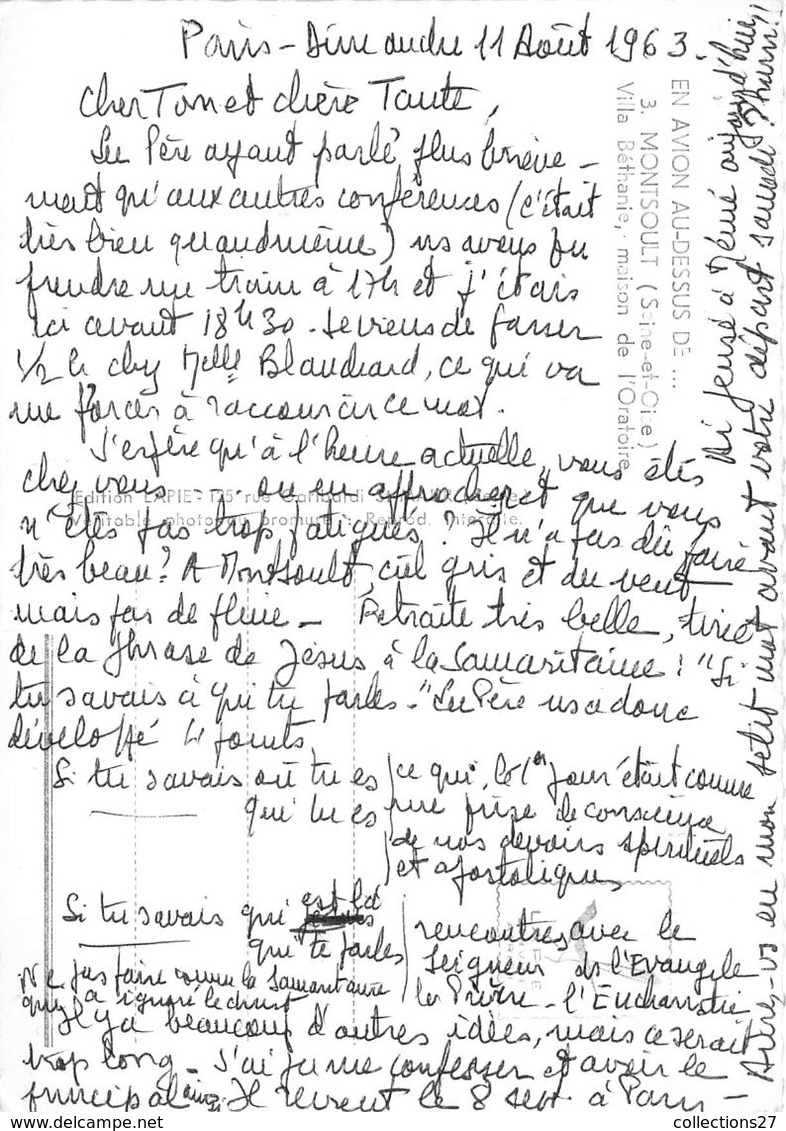 Paris - Dimanche 11 Août 1963.
Cher Tonet chère Tante,
Le Père ayant parlé plus briève-
ment qu'aux autres conférences (c'était
très bien quand même) ns avons pu
prendre un train à 17h et j'étais
ici avant 18h30. Je viens de passer
1/2 h chez Melle Blanchard, ce qui va
me forcer à raccourcir ce mot.
J'espère qu'à l'heure actuelle, vous êtes
chez vous - ou en approche, et que vous
n'êtes pas trop fatigués? Il n'a pas dû faire
très beau? A Montsoult, ciel gris et du vent
mais pas de pluie - Retraite très belle, tirée
de la phrase de Jésus à la Samaritaine: "Si
tu savais à qui tu parles." Le Père ns a donc
développé 4 points
Si tu savais où tu es
qui tu es
ce qui, le 1er jour était comme
une prise de conscience
de nos devoirs spirituels
et apostoliques
Si tu savais qui est là
qui te parles
rencontres avec le
Seigneur ds l'Evangile
la Prière - l'Eucharistie
Ne pas faire comme la Samaritaine
qui a ignoré le Christ
Il y a beaucoup d'autres idées, mais ce serait
trop long - J'ai pu me confesser et avoir le
principal ainsi. Il revient le 8 sept. à Paris -
Aurez-vs eu mon petit mot avant votre départ samedi
Ai pensé à Mémé aujourd'hui,
EN AVION AU-DESSUS DE ...
3. MONTSOULT (Seine-et-Oise)
Villa Béthanie, maison de l'Oratoire
Edition LAPIE - 125 rue Garibaldi
Véritable photo au bromure - Reprod. interdite.
collections27